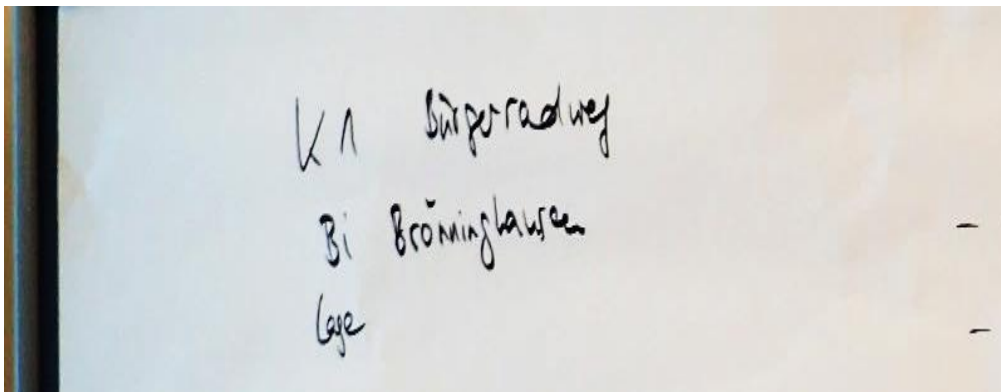 K1 Bürgerradweg
Bi Brönninghausen
Lage